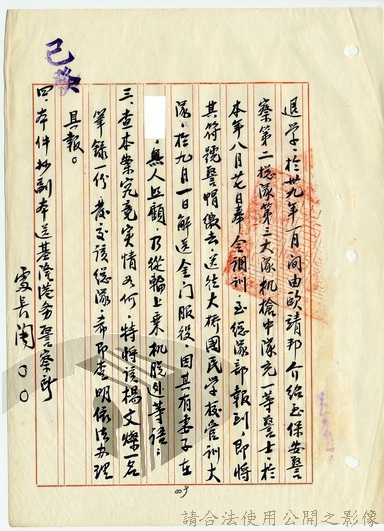 已發
退學，於卅九年一月间由歐靖邦介绍至保安警
察第二總隊第三大隊机槍中隊充一等警士，於
本年八月廿七日奉令調訓，至總隊部報到，即將
其符號警帽繳去，送往大橋國民學校管訓大
隊，於九月一日解送金门服役，因其有妻子在
無人照顧，乃從輪上乘机脱逃等語；
三、查本案究竟实情如何，特將該楊文燦一名
筆錄一份發交該總隊，希即查明依法办理
具報。
四、本件抄副本送基隆港务警察所
處長陶〇〇
請合法使用公開之影像